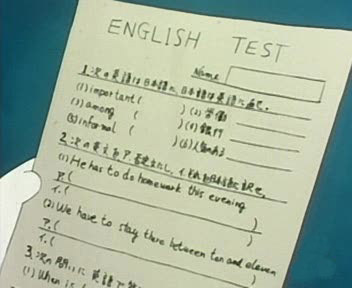 ENGLISH TEST
Name
1. 次の英語は日本語に、日本語は英語に直せ。
(1) important ( ) (2) 労働
(3) among ( ) (4) 銀行
(5) informal ( ) (6) 人気のある
2. 次の英文を
(1) He has to do homework this evening
ア. ( )
イ. ( )
(2) We have to stay there between ten and eleven
ア. ( )
イ. ( )
3. 次の問いに英語で
(1) When is